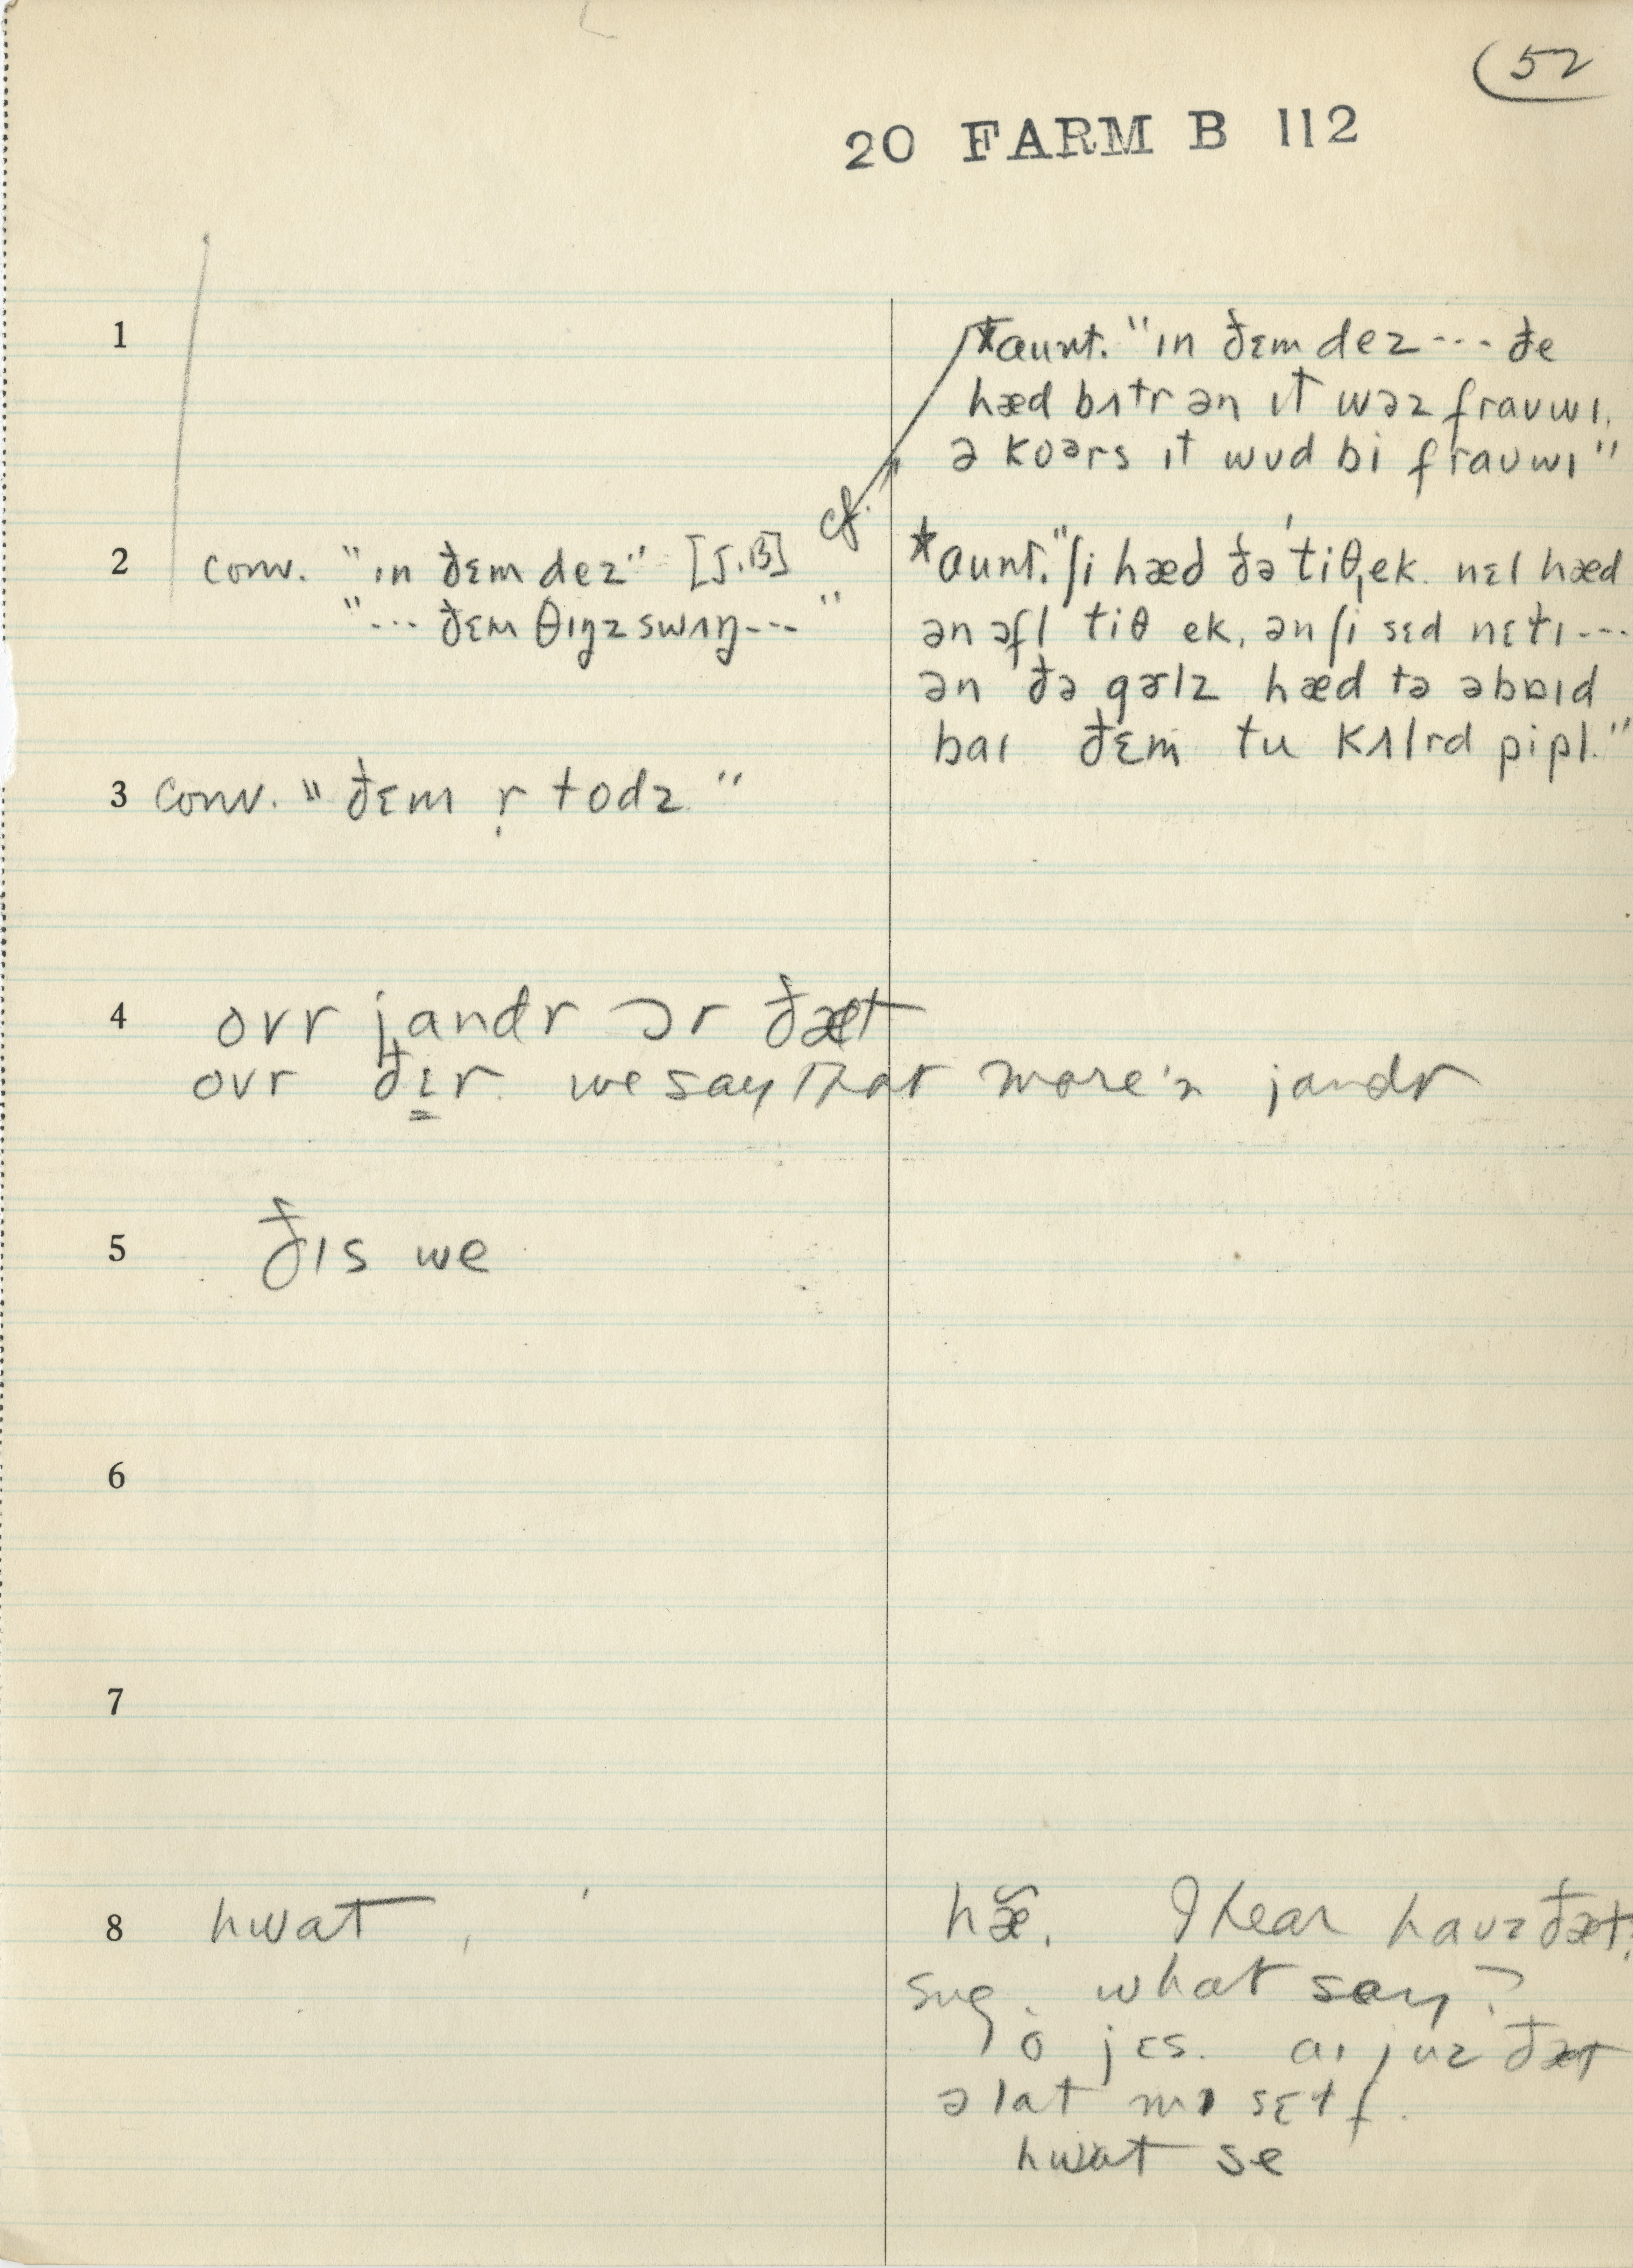 52
20 FARM B 112
1
*aunt. "ɪn ðɛm dez --- ðe
hæd bʌtr ən ɪt wəz frauwɪ.
ə koərs ɪt wud bi frauwɪ"
2 conv. "ɪn ðɛm dez" [J.B] cf.
"--- ðɛm θɪŋz swʌŋ---"
*aunt. "ʃi hæd ðə ˈtiθˌek. nɛl hæd
ən ɔfl tiθ ek, ən ʃi sɛd nɛtɪ---
ən ðə gɚlz hæd tə əbɒɪd
baɪ ðɛm tu kʌlrd pipl."
3 conv. "ðɛm r̩ todz"
4 ovr jandr ɔr ðæt
ovr ðɪr. we say that more'n jandr
5 ðɪs we
6
7
8 hwat
hæ̃. I hear hauz ðæt?
sug. what say?
o jɛs. aɪ juz ðæt
ə lat mɪ sɛlf.
hwat se